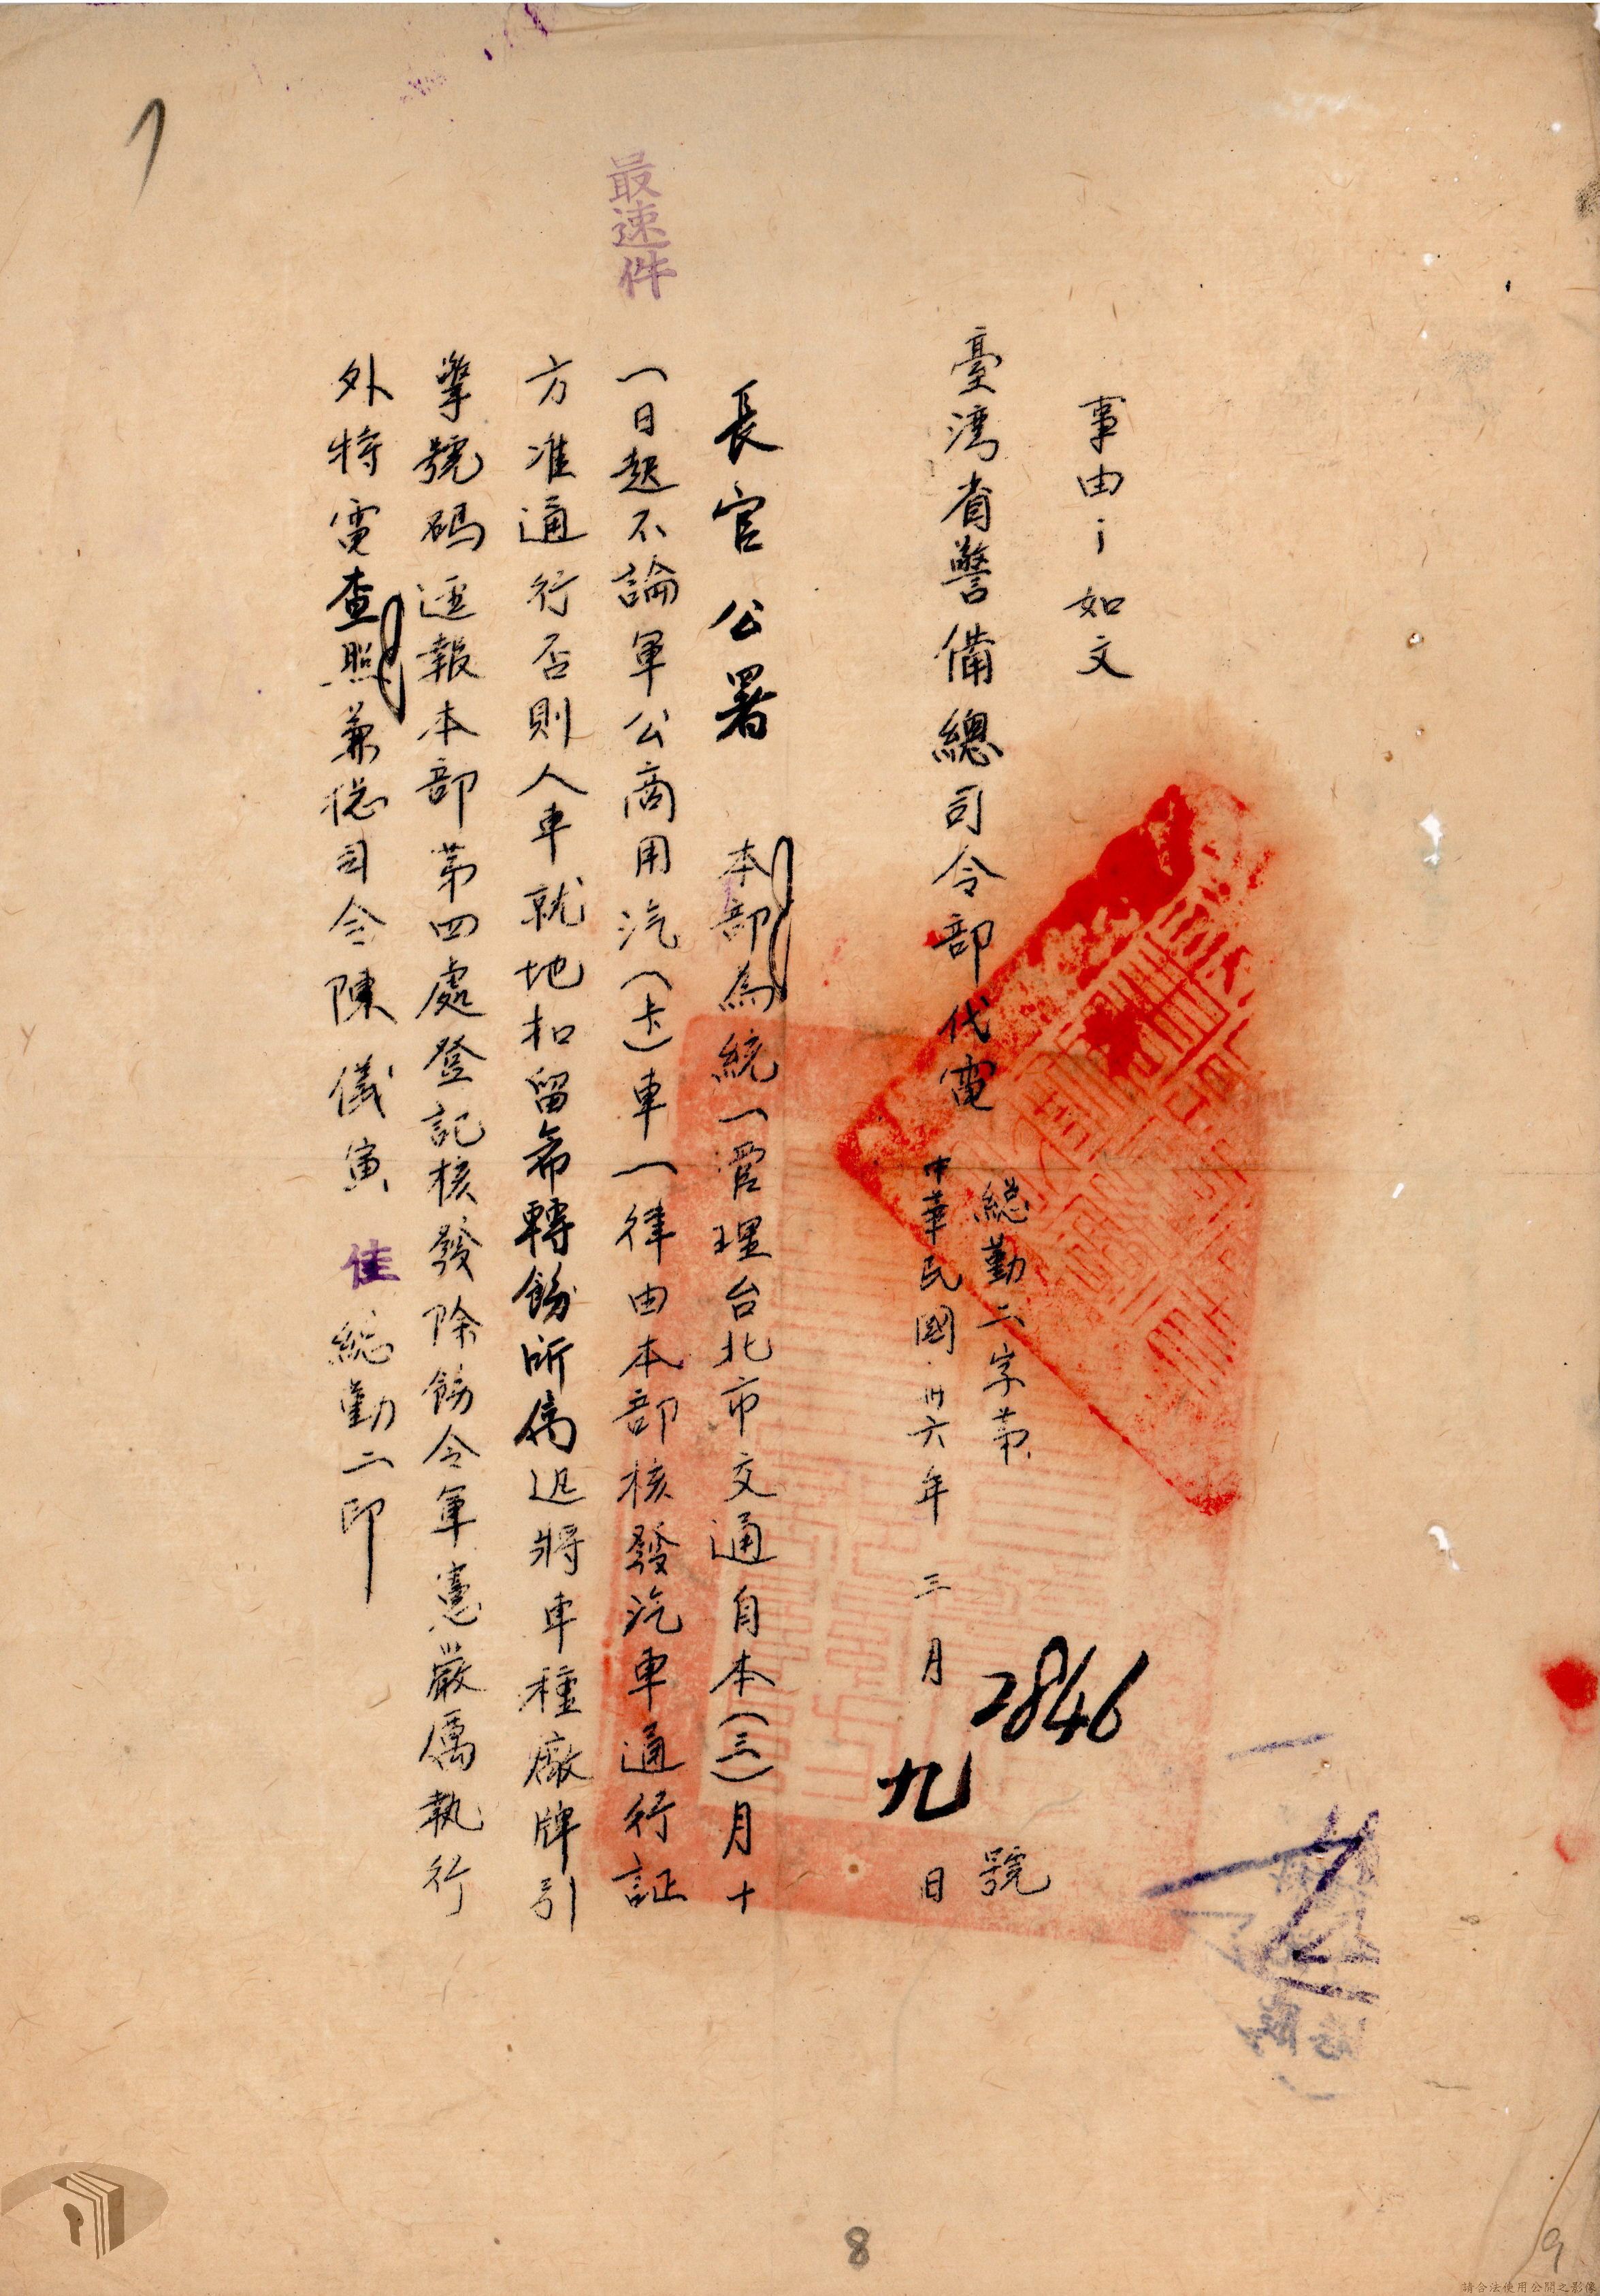 事由:如文
臺灣省警備總司令部代電
總勤二字第2846號
中華民國卅六年三月九日
最速件
長官公署 本部為統一管理台北市交通自本(三)月十
一日起不論軍公商用汽(卡)車一律由本部核發汽車通行証
方准通行否則人車就地扣留希轉飭所屬迅將車種廠牌引
擎號碼逕報本部第四處登記核發除飭令軍憲嚴厲執行
外特電查照兼總司令陳儀寅佳總勤二印
8
9
請合法使用公開之影像